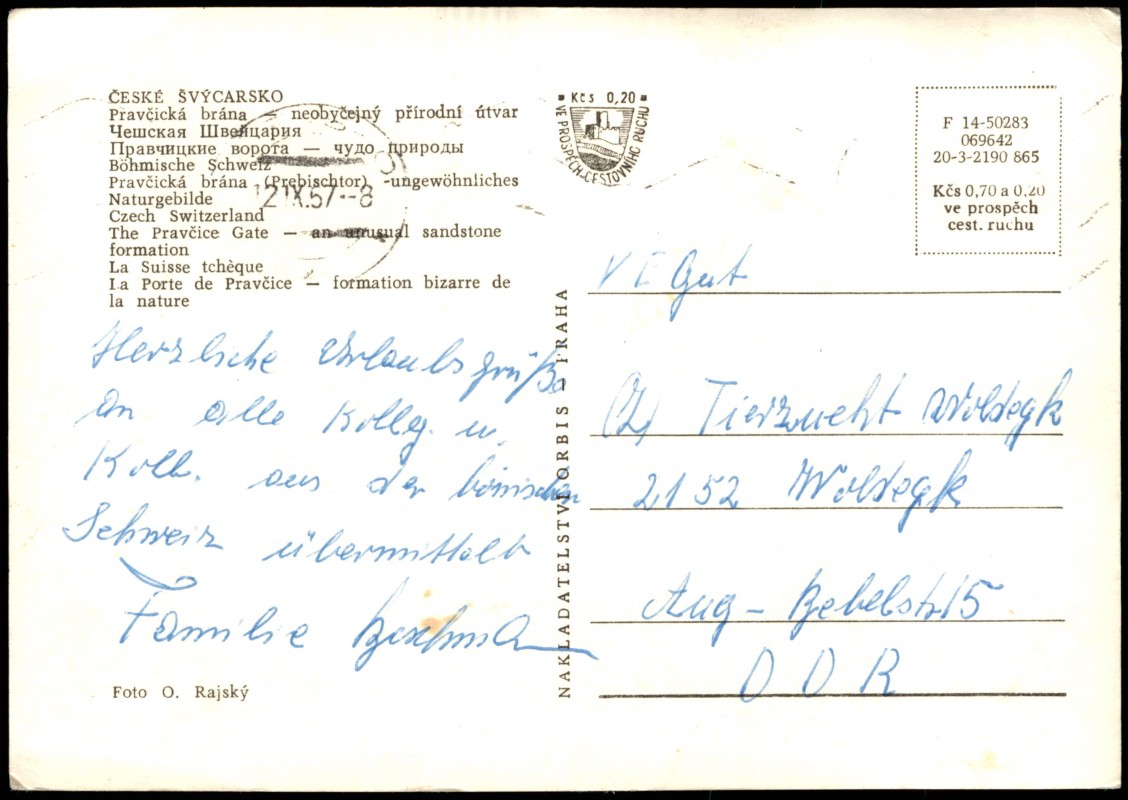 ČESKÉ ŠVÝCARSKO
Pravčická brána — neobyčejný přírodní útvar
Чешская Швейцария
Правчицкие ворота — чудо природы
Böhmische Schweiz
Pravčická brána (Prebischtor) -ungewöhnliches
Naturgebilde
Czech Switzerland
The Pravčice Gate — an unusual sandstone
formation
La Suisse tchèque
La Porte de Pravčice — formation bizarre de
la nature
12.IX.67--8
Kčs 0,20
VE PROSPĚCH CESTOVNÍHO RUCHU
F 14-50283
069642
20-3-2190 865
Kčs 0,70 a 0,20
ve prospěch
cest. ruchu
Herzliche Urlaubsgrüße
an alle Kollg. u.
Koll. aus der bömischen
Schweiz übermittelt
Familie
Foto O. Rajský
NAKLADATELSTVÍ ORBIS — PRAHA
VE Gut
(Z) Tierzucht Woldegk
2152 Woldegk
Aug - Bebelstr 15
DDR